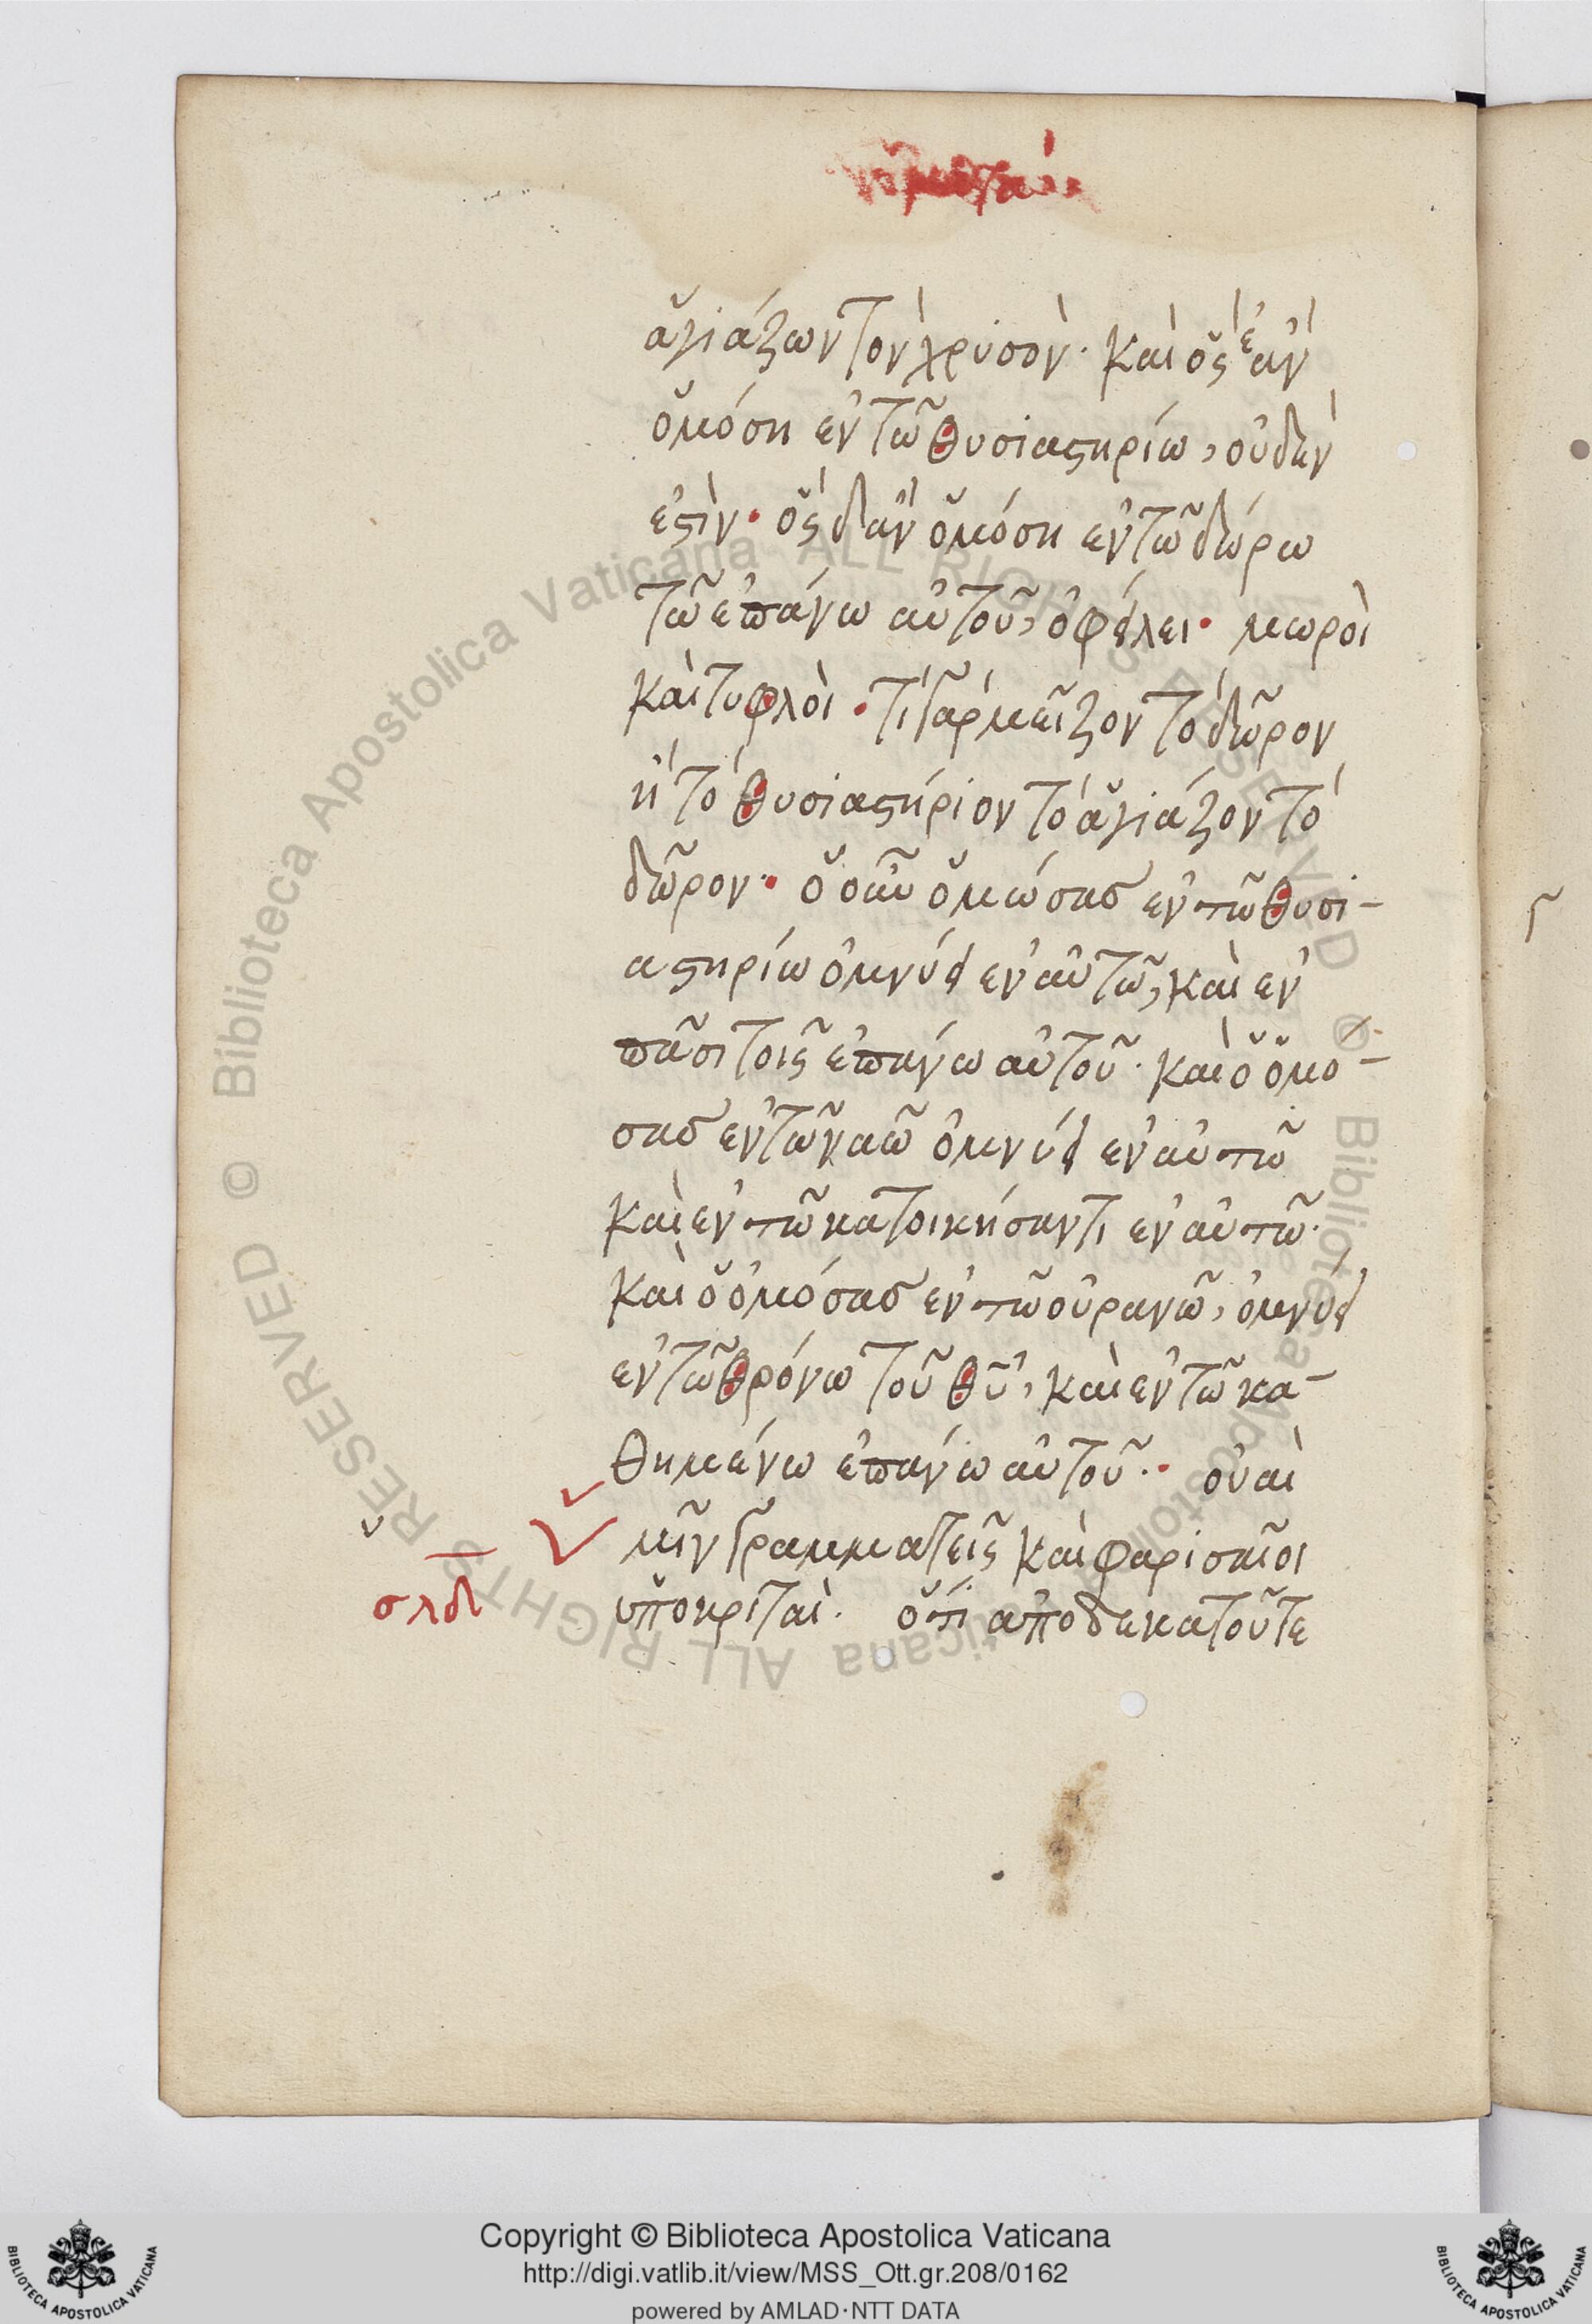 ἁγιάζων τὸν χρύσον· καὶ ὃς ἐὰν
ὁμόση ἐν τῶ θυσιαστηρίω, οὐδὲν
ἐστὶν· ὃς δ' ἂν ὁμόση ἐν τῶ δώρω
τῶ ἐπάνω αὐτοῦ, ὀφείλει· μωροὶ
καὶ τυφλοὶ· τί γὰρ μεῖζον τὸ δῶρον
ἢ τὸ θυσιαστήριον τὸ ἁγιάζον τὸ
δῶρον· ὁ οὖν ὁμώσας ἐν τῶ θυσι-
αστηρίω ὀμνύει ἐν αὐτῶ, καὶ ἐν
πᾶσι τοῖς ἐπάνω αὐτοῦ· καὶ ὁ ὁμό-
σας ἐν τῶ ναῶ ὀμνύει ἐν αὐτῶ
καὶ ἐν τῶ κατοικήσαντι ἐν αὐτῶ·
καὶ ὁ ὀμόσας ἐν τῶ οὐρανῶ, ὀμνύει
ἐν τῶ θρόνω τοῦ θῦ, καὶ ἐν τῶ κα-
θημένω ἐπάνω αὐτοῦ·· οὐαὶ
ὑμῖν γραμματεῖς καὶ φαρισαῖοι
σλδ ὑποκριταὶ· ὅτι ἀποδεκατοῦτε
Copyright © Biblioteca Apostolica Vaticana
http://digi.vatlib.it/view/MSS_Ott.gr.208/0162
powered by AMLAD·NTT DATA